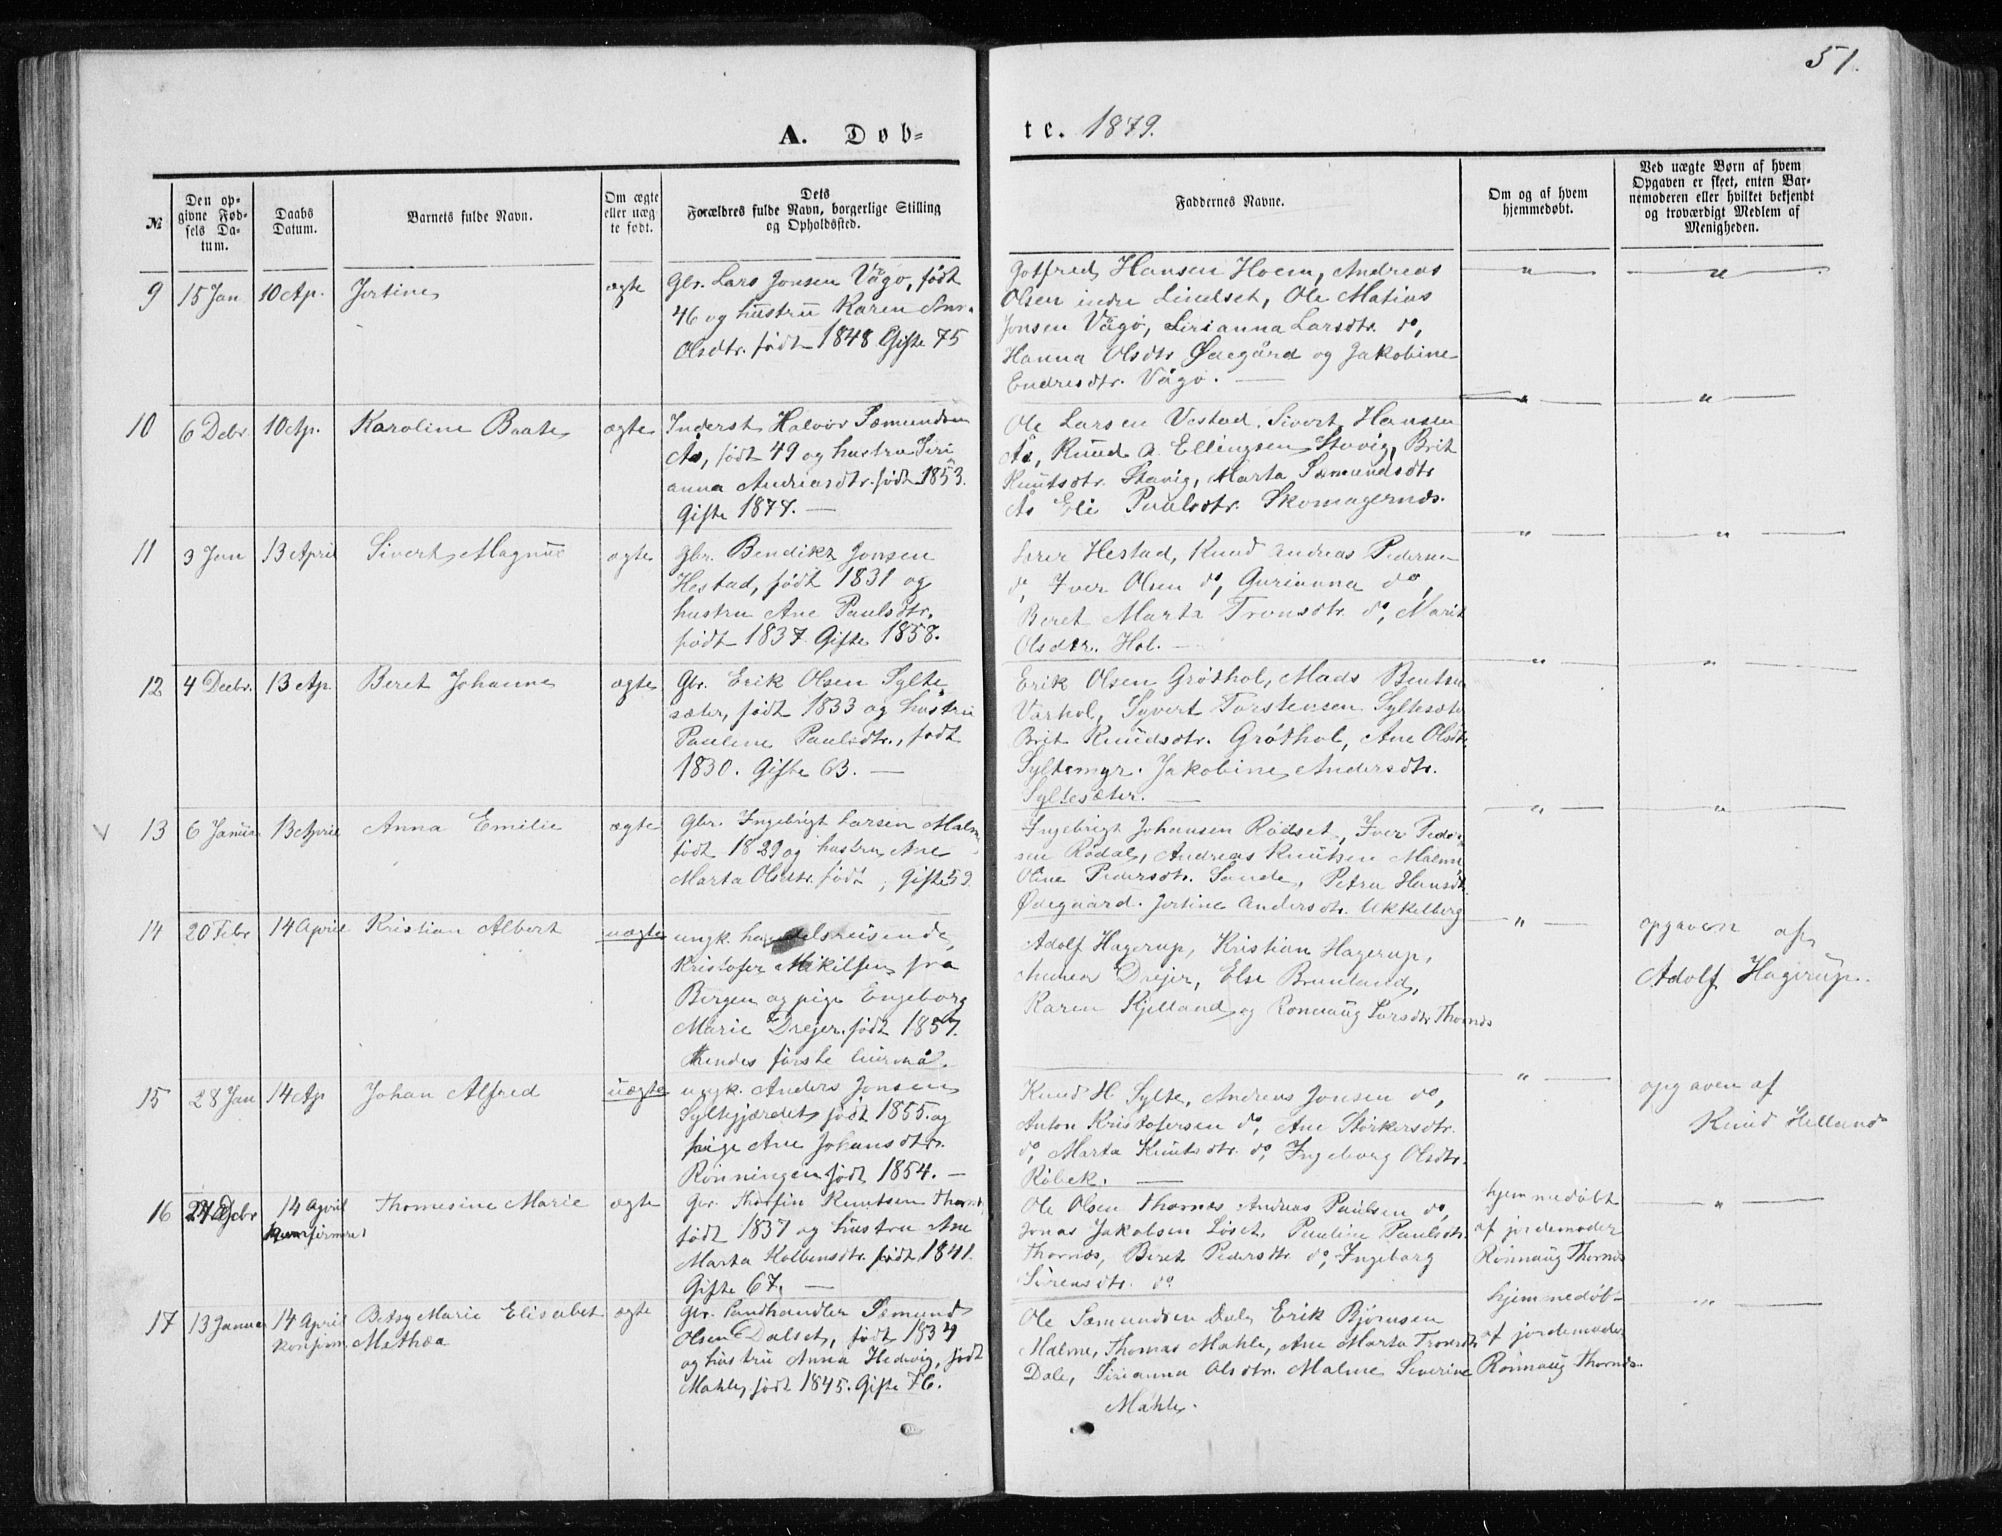 51.
A. Døb-
te. 1879.
№
Den op-
givne Fød-
sels Da-
tum.
Daabs
Datum.
Barnets fulde Navn.
Om ægte
eller uæg
te født.
Dets
Forældres fulde Navn, borgerlige Stilling
og Opholdssted.
Faddernes Navne.
Om og af hvem
hjemmedøbt.
Ved uægte Børn af hvem
Opgaven er skeet, enten Bar-
nemoderen eller hvilket bekjendt
og troværdigt Medlem af
Menigheden.
9 15 Jan 10 Ap. Jertine ægte
Gbr. Lars Jonsen Vågø, født
46 og hustru Karen
Olsdtr. født 1848 Gifte 75
Gotfred Hansen Hoem, Andreas
Olsen indre Lindset, Ole Matias
Jonsen Vågø, Sirianna Larsdtr. do,
Hanna Olsdtr Ødegård og Jakobine
Endresdtr. Vågø. —
" "
10 6 Debr 10 Ap. Karoline Beate ægte
Inderst Halvor Sæmundsen
Ås, født 49 og hustru Siri
anna Andreasdtr. født 1853.
Gifte 1878. —
Ole Larsen Vestad, Sivert Hansen
Ås, Knud A. Ellingsen Stavig, Brit
Knutsdtr. Stavig, Marta Sæmundsdtr
Ås Eli Paulsdtr. Skomagernæs.
" "
11 3 Jan 13 April Sivert Magnus ægte
Gbr. Bendikt Jonsen
Hestad, født 1831 og
hustru Ane Paulsdtr.
født 1837 Gifte 1858.
Hestad, Knud Andreas Pedersen
do, Iver Olsen do, Gurianna do,
Beret Marta Tronsdtr. do, Marit
Olsdtr. Hol. —
" "
12 4 Decbr. 13 Ap. Beret Johanne ægte
Gbr. Erik Olsen Sylte
sæter, født 1833 og hustru
Pauline Paulsdtr., født
1830. Gifte 63. —
Erik Olsen Gròthol, Mads Bentsen
Varhol, Syvert Torstensen Syltesæter
Brit Knudsdtr. Gròthol, Ane Olsdtr
Syltemyr. Jakobine Andersdtr.
Syltesæter. —
" "
13 6 Januar 13 April Anna Emilie ægte
Gbr. Ingebrigt Larsen Malme
født 1829 og hustru Ane
Marta Olsdtr. født , Gifte 59
Ingebrigt Johansen Rødset, Iver Peder
sen Rødal, Andreas Knutsen Malme
Oline Pedersdtr. Sande, Petra Hansdt.
Ødegaard. Jertine Andersdtr. Ukkelberg
" "
14 20 Febr 14 April Kristian Albert uægte
ungk. handelsreisende,
Kristofer Mikilsen fra
Bergen og pige Engeborg
Marie Drejer. født 1857.
hendes første leiermål.
Adolf Hagerup, Kristian Hagerup,
Drejer, Else Brunland,
Karen Kjelland og Ronnaug Larsdtr Thornæs
"
opgaven af
Adolf Hagerup.
15 28 Jan 14 Ap Johan Alfred uægte
ungk. Anders Jonsen
Syltegjærdet, født 1855. og
pige Ane Johansdtr.
Rønningen født 1854. —
Knud H Sylte, Andreas Jonsen do,
Anton Kristofersen do, Ane Størkersdtr.
do, Marta Knutsdtr. do, Ingeborg Olsdtr.
Røbek. —
"
opgaven af
Knud Helland
16 Debr 14 April Thomesine Marie ægte
konfirmeret
Gbr. Thorfin Knutsen Thornæs,
født 1837 og hustru Ane
Marta Kolbensdtr. født 1841.
Gifte 67. —
Ole Olsen Thornæs Andreas Paulsen do,
Jonas Jakobsen Løset, Pauline Paulsdtr.
Thornæs, Beret Pedersdtr. do, Ingeborg
Sørensdtr. do
hjemmedøbt
af jordemoder
Rønnaug Thornæs
"
17 13 Januar 14 April Betsy Marie Elisabet ægte
konfirm. Mathea
Gbr. Landhandler Sæmund
Olsen Dalset, født 1834
og hustru Anna Hedvig, født
Mahle, født 1845. Gifte 76.
Ole Sæmundsen Dale, Erik Bjørnsen
Malme, Thomas Mahle, Ane Marta Tronsdtr
Dale, Sirianna Olsdtr. Malme Severine
Mahle.
hjemmedøbt
af jordemoder
Rønnaug Thornæs.
"